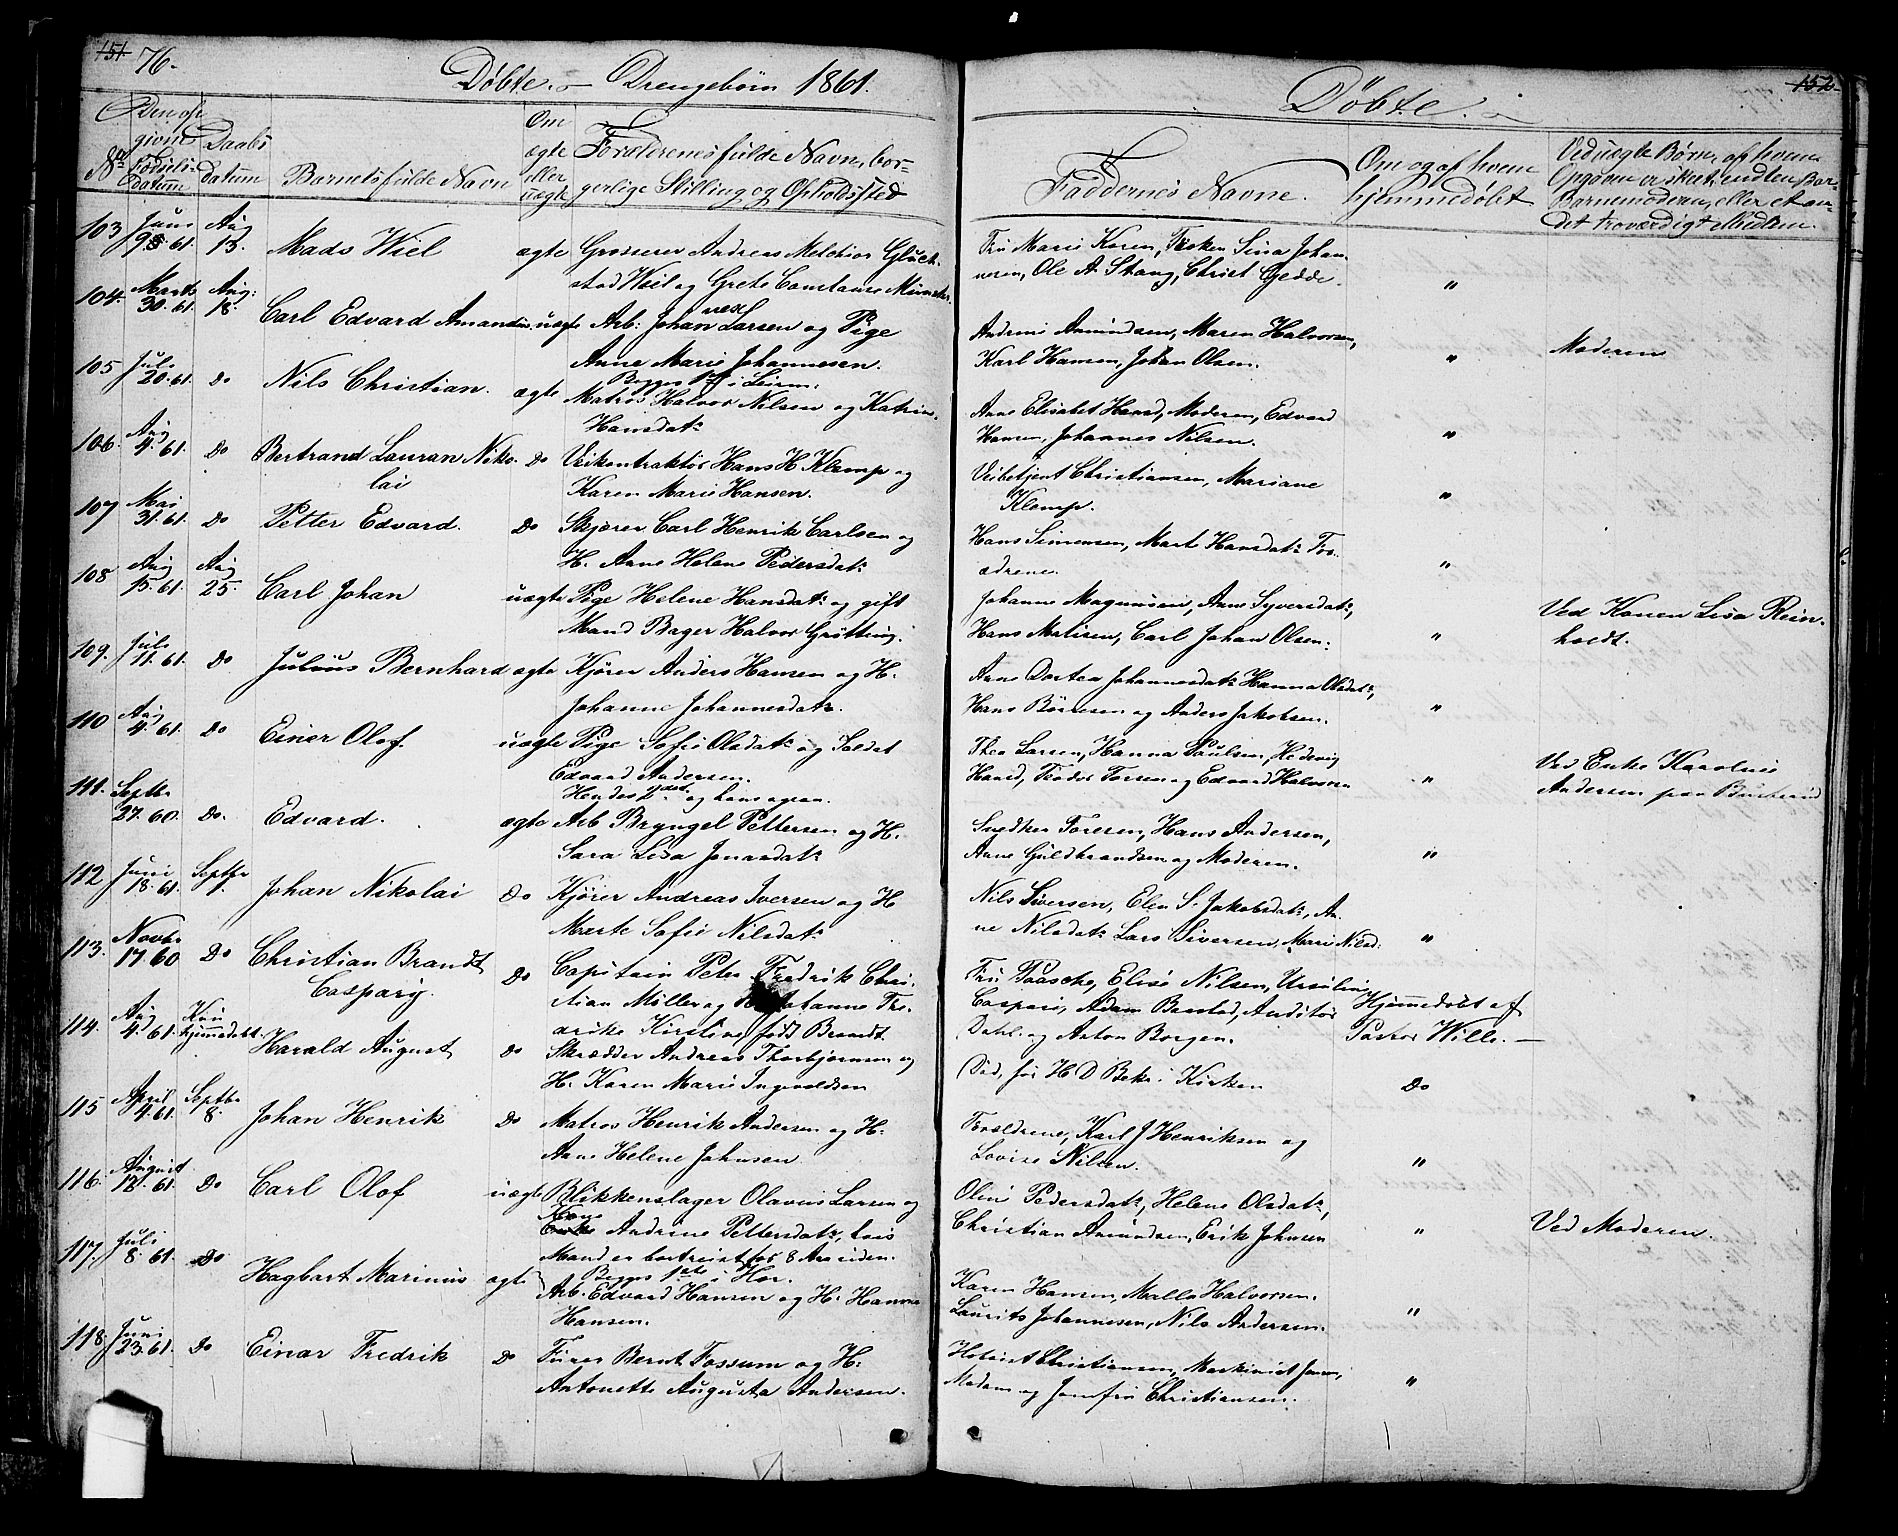 151. 76.
Døbte. Drengebørn 1861.
No
Den op
givne
Fødsels-
datum
Daabs
datum
Barnets fulde Navn
Om
ægte
eller
uægte
Forældrenes fulde Navn, bor-
gerlige Stilling og Opholdssted
103 Juni 61. Aug 13. Mads Wiel ægte Grosserer Andreas Melchior Glück-
stad Wiel og Grete Constance Münster.
104. Marts 30. 61. Aug: 18. Carl Edvard Amandus uægte Arb: Johan Larsen og Pige
Anne Marie Johannesen.
Begges 1ste i Leierm.
105 Juli 20. 61. Do Nils Christian. ægte Matros Halvor Nilsen og Katrine
Hansdatr
106. Aug 4. 61. Do Bertrand Lauran Niko-
lai Do Veikontraktør Hans H. Klemp og
Karen Marie Hansen.
107 Mai 31. 61. Do Petter Edvard. Do Skjører Carl Henrik Carlsen og
H. Anne Helene Pedersdatr
108 Aug 15. 61. Aug 25. Carl Johan uægte Pige Helene Hansdatr og gift
Mand Bager Halvor Grøtting.
109. Juli 11. 61. Do Julius Bernhard ægte Kjører Anders Hansen og H.
Johanne Johannesdatr
110 Aug 4. 61. Do Einer Olof. uægte Pige Sofie Olsdatr og Soldat
Edvard Andersen.
Hendes 1ste og hans ogsaa.
111. Septbr 27. 60. Do. Edvard. ægte Arb Bryngel Pettersen og H.
Sara Lisa Jonasdatr
112 Juni 18. 61. Septbr 1. Johan Nikolai Do Kjører Andreas Iversen og H
Marte Sofie Nilsdatr
113. Novbr 17. 60 Do Christian Brandt
Caspary. Do Capitain Peter Fredrik Chri-
stian Møller og Johanne The-
arike Kirstine født Brandt.
114. Aug 4. 61. Kun hjemmedøbt. Harald August Do Skrædder Andreas Thorbjørnsen og
H. Karen Marie Ingevoldsen
115 April 4. 61. Septbr 8. Johan Henrik Do Matros Henrik Andersen og H:
Anne Helene Johnsen
116. August 12. 61. Do Carl Olof uægte Blikkenslager Olavus Larsen og
Kone Andrine Pettersdatr, hvis
Mand er bortreist for 8 Aar siden.
Begges 1ste i Hor.
117. Juli 8. 61. Do Hagbart Marinus ægte Arb. Edvard Hansen og H. Hanna
Hansen.
118. Juni 23. 61. Do Einar Fredrik Do Furer Bernt Fossum og H:
Antonette Augusta Andersen.
152.
Døbte.
Faddernes Navne.
Om og af hvem
hjemmedøbt
Ved uægte Børn, af hvem
Opgaven er skeet, enten Bar-
Barnemoderen, eller et an-
det troværdigt Medlem.
Fru Marie Koren, Frøken Sina Johan-
nesen, Ole A. Stang, Christ Gedde. "
Andrine Amundsen, Maren Halvorsen,
Karl Hansen, Johan Olsen. " Moderen
Anne Elisabet Hansd, Moderen, Edvard
Hansen, Johannes Nilsen. "
Veibetjent Christiansen, Mariane
Klemp. "
Hans Simensen, Mart Hansdatr For-
ældrene. "
Johanne Magnussen, Anne Syversdatr,
Hans Matisen, Carl Johan Olsen. " Ved Konen Lisa Rein-
holdt.
Anne Dortea Johannesdatr Hanna Olsdatr,
Hans Børresen og Anders Jakobsen. "
Thea Larsen, Hanna Paulsen, Hedevig
Hansd, Fredr Torsen og Edvard Halvorsen " Ved Enke Karoline
Andersen paa Busterud
Snedker Toresen, Hans Andersen,
Anne Guldbrandsen og Moderen. "
Nils Siversen, Elen S. Jakobsdatr, An-
ne Nilsdatr Lars Siversen, Mari Nilsd: "
Fru Paaske, Elise Nilsen, Ursuline
Caspari, Adam Barstad, Auditør
Dahl. og Anton Borgen. Hjemmedøbt af
Pastor Wille. —
Død, før H D Bek. i Kirken Do
Forældrene, Karl J Henriksen og
Lovise Nilsen. "
Olive Pedersdatr, Helene Olsdatr,
Christian Amundsen, Erik Johnsen " Ved Moderen.
Karen Hansen, Malla Halvorsen.
Laurits Johannesen, Nils Andersen. "
Hotvist Christiansen, Maskinist Jansen,
Madam og Jomfru Christiansen. "